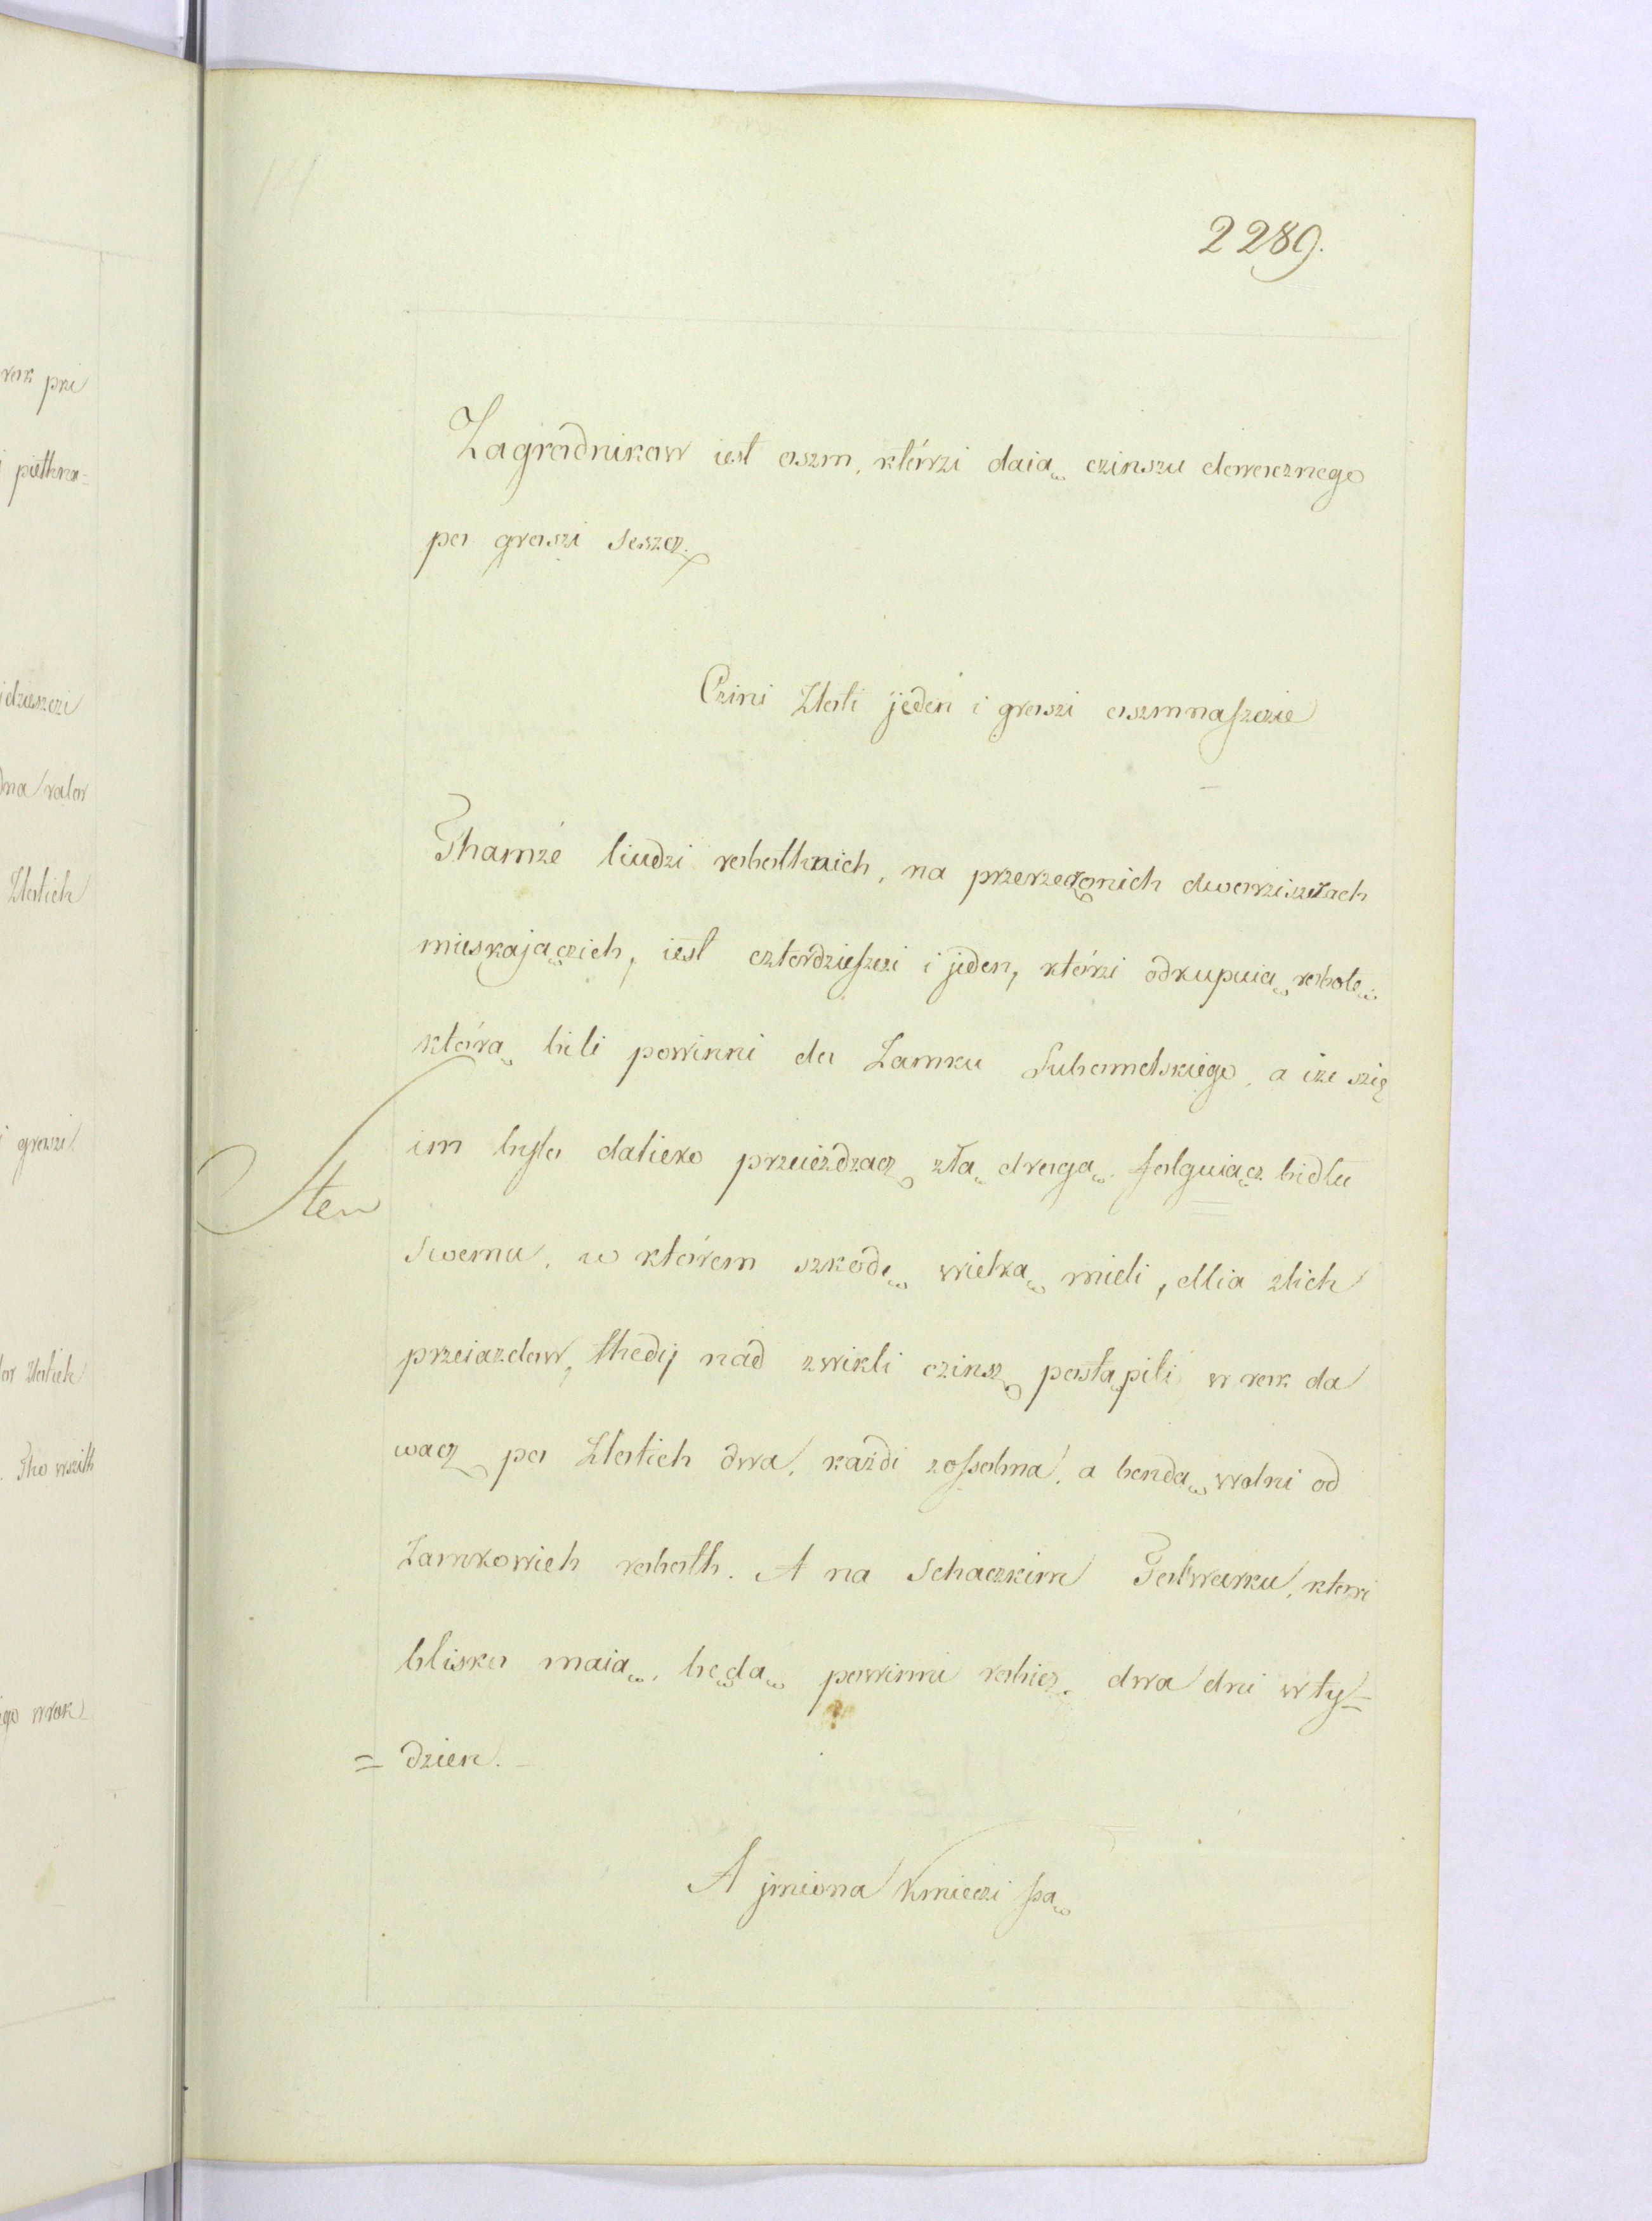 2289.
Zagrodnikow iest oszm, którzi daią czinszu dorocznego
po groszi seszcz.
Czini Zloti jeden i groszi oszmnaſzczie
Thamże liudzi robothnich, na przerzeczonich dworziszczach
mieskajączich, iest czterdzieſzczi i jeden, którzi odkupuią robotę
którą bili powinni do Zamku Lubomelskiego, a iże szię
im było dalieko przeieżdzacz złą drogą. folguiącz bidłu
Swemu, w którem szkodę wielką mieli, dlia zlich
przeiazdow, thedij nad zwikli czinsz postąpili w rok da
wacz po Zlotich dwa, każdi zoſsobna, a bendą wolni od
Zamkowich roboth. A na Schaczkim Folwarku, ktori
blisko maią, będą powinni robicz dwa dni w ty=
= dzien.
A jmiona Kmieczi ſsą
Sten
rok pri
i piethna=
idzieszczi
dna kolor
Zlotich
i groszi
Zlotich
. Tho wszith
igo w rok